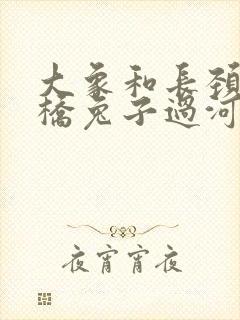 大象和長頸
橋兔子過河
夜宵宵夜